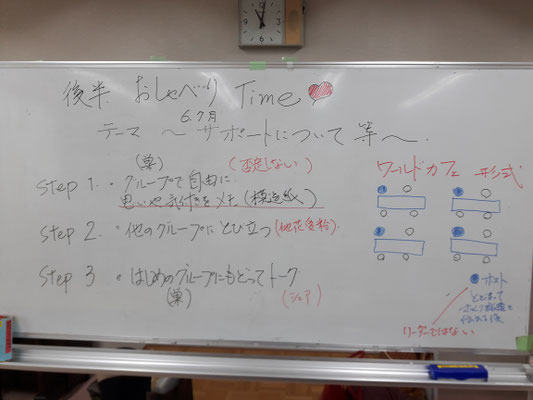 後半 おしゃべり Time
6.7月
テーマ ~ サポートについて 等~
(巣) (否定しない)
Step 1. ・グループで自由に
思いや気付きをメモ(模造紙)
Step 2. ・他のグループにとび立つ(他花受粉)
Step 3 ・はじめのグループにもどってトーク
(巣) (シェア)
ワールドカフェ 形式
ホスト
とどまって
リーダーではない